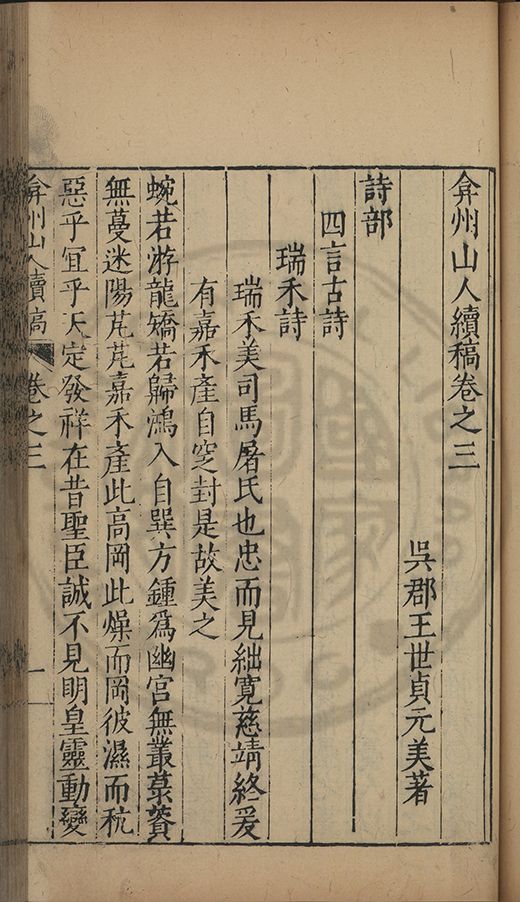 弇州山人續稿卷之三
吳郡王世貞元美著
詩部
四言古詩
瑞禾詩
瑞禾美司馬屠氏也忠而見絀寬慈靖終爰
有嘉禾產自窆封是故美之
蜿若游龍矯若歸鴻入自巽方鍾為幽宮無叢莫薋
無蔓迷陽芃芃嘉禾產此高岡此燥而岡彼濕而秔
惡乎宜乎天定發祥在昔聖臣誠不見明皇靈動變
弇州山人續稿 卷之三 一